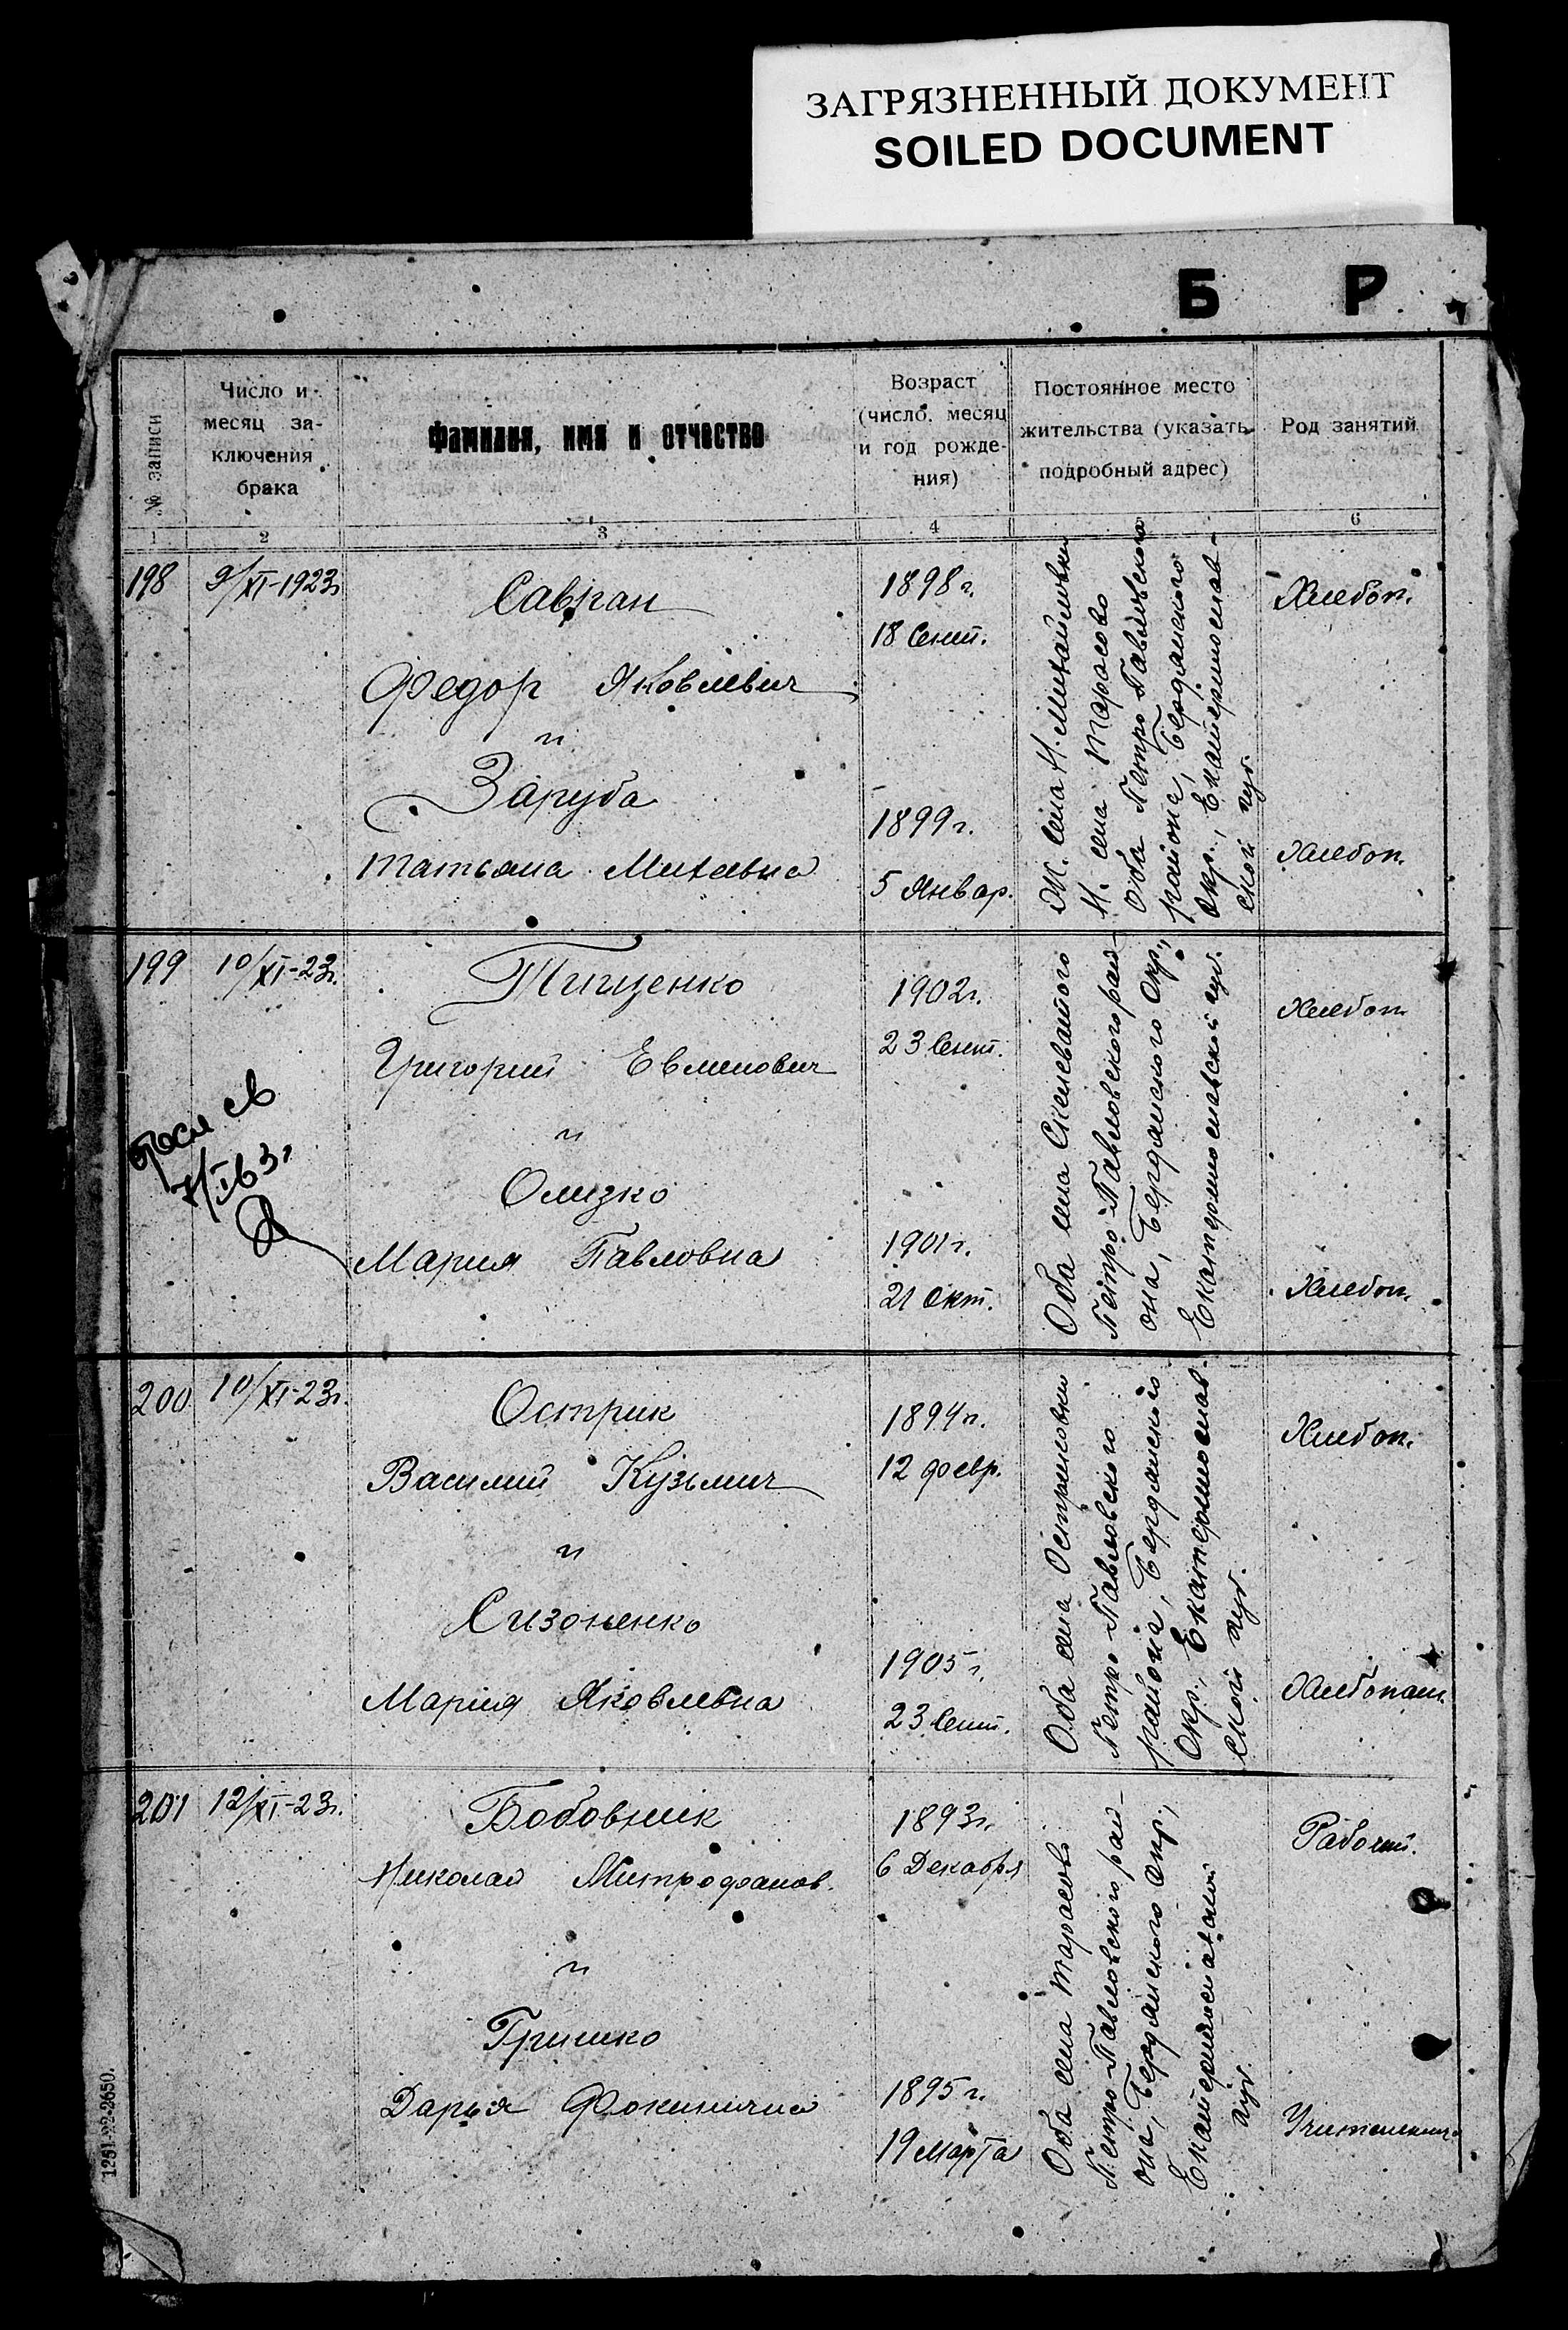 ЗАГРЯЗНЕННЫЙ ДОКУМЕНТ
SOILED DOCUMENT
Б Р
№ записи
Число и месяц за-
ключения
брака
Фамилия, имя и отчество
Возраст
(число, месяц
и год рожде-
ния)
Постоянное место
жительства (указать
подробный адрес)
Род занятий
1
2
3
4
6
198
9/XI-1923г.
Савган
Федор Яковлевич
и
Заруба
Татьяна Михеевна
1898г.
18 Сент.
1899г.
5 Январ.
Ж. села Н. Михайловки
Н. села Тарасово
Оба Петро-Павловского
района, Бердянского
Окр., Екатеринослав-
ской губ.
Хлебоп.
Хлебоп.
199
10/XI-23г.
Тищенко
Григорий Евменович
и
Олизко
Мария Павловна
1902г.
23 Сент.
1901г.
21 Окт.
Оба села Скелеватого
Петро-Павловского рай-
она, Бердянского Окр.,
Екатериносlавской губ.
Хлебоп.
Хлебоп.
200
10/XI-23г.
Острик
Василий Кузьмич
и
Сизоненко
Мария Яковлевна
1894г.
12 февр.
1905г.
23 Сент.
Оба села Остриковки
Петро-Павловского
района, Бердянского
Окр., Екатеринослав-
ской губ.
Хлебоп.
Хлебопаш.
201
12/XI-23г.
Бобовник
Николай Митрофанов.
и
Гришко
Дарья Фокинична
1893г.
6 Декабря
1895г.
19 Марта
Оба села Тарасово
Петро-Павловского рай-
она, Бердянского Окр.,
Екатеринославской
губ.
Рабочий.
Учительница
1251-22-2650.